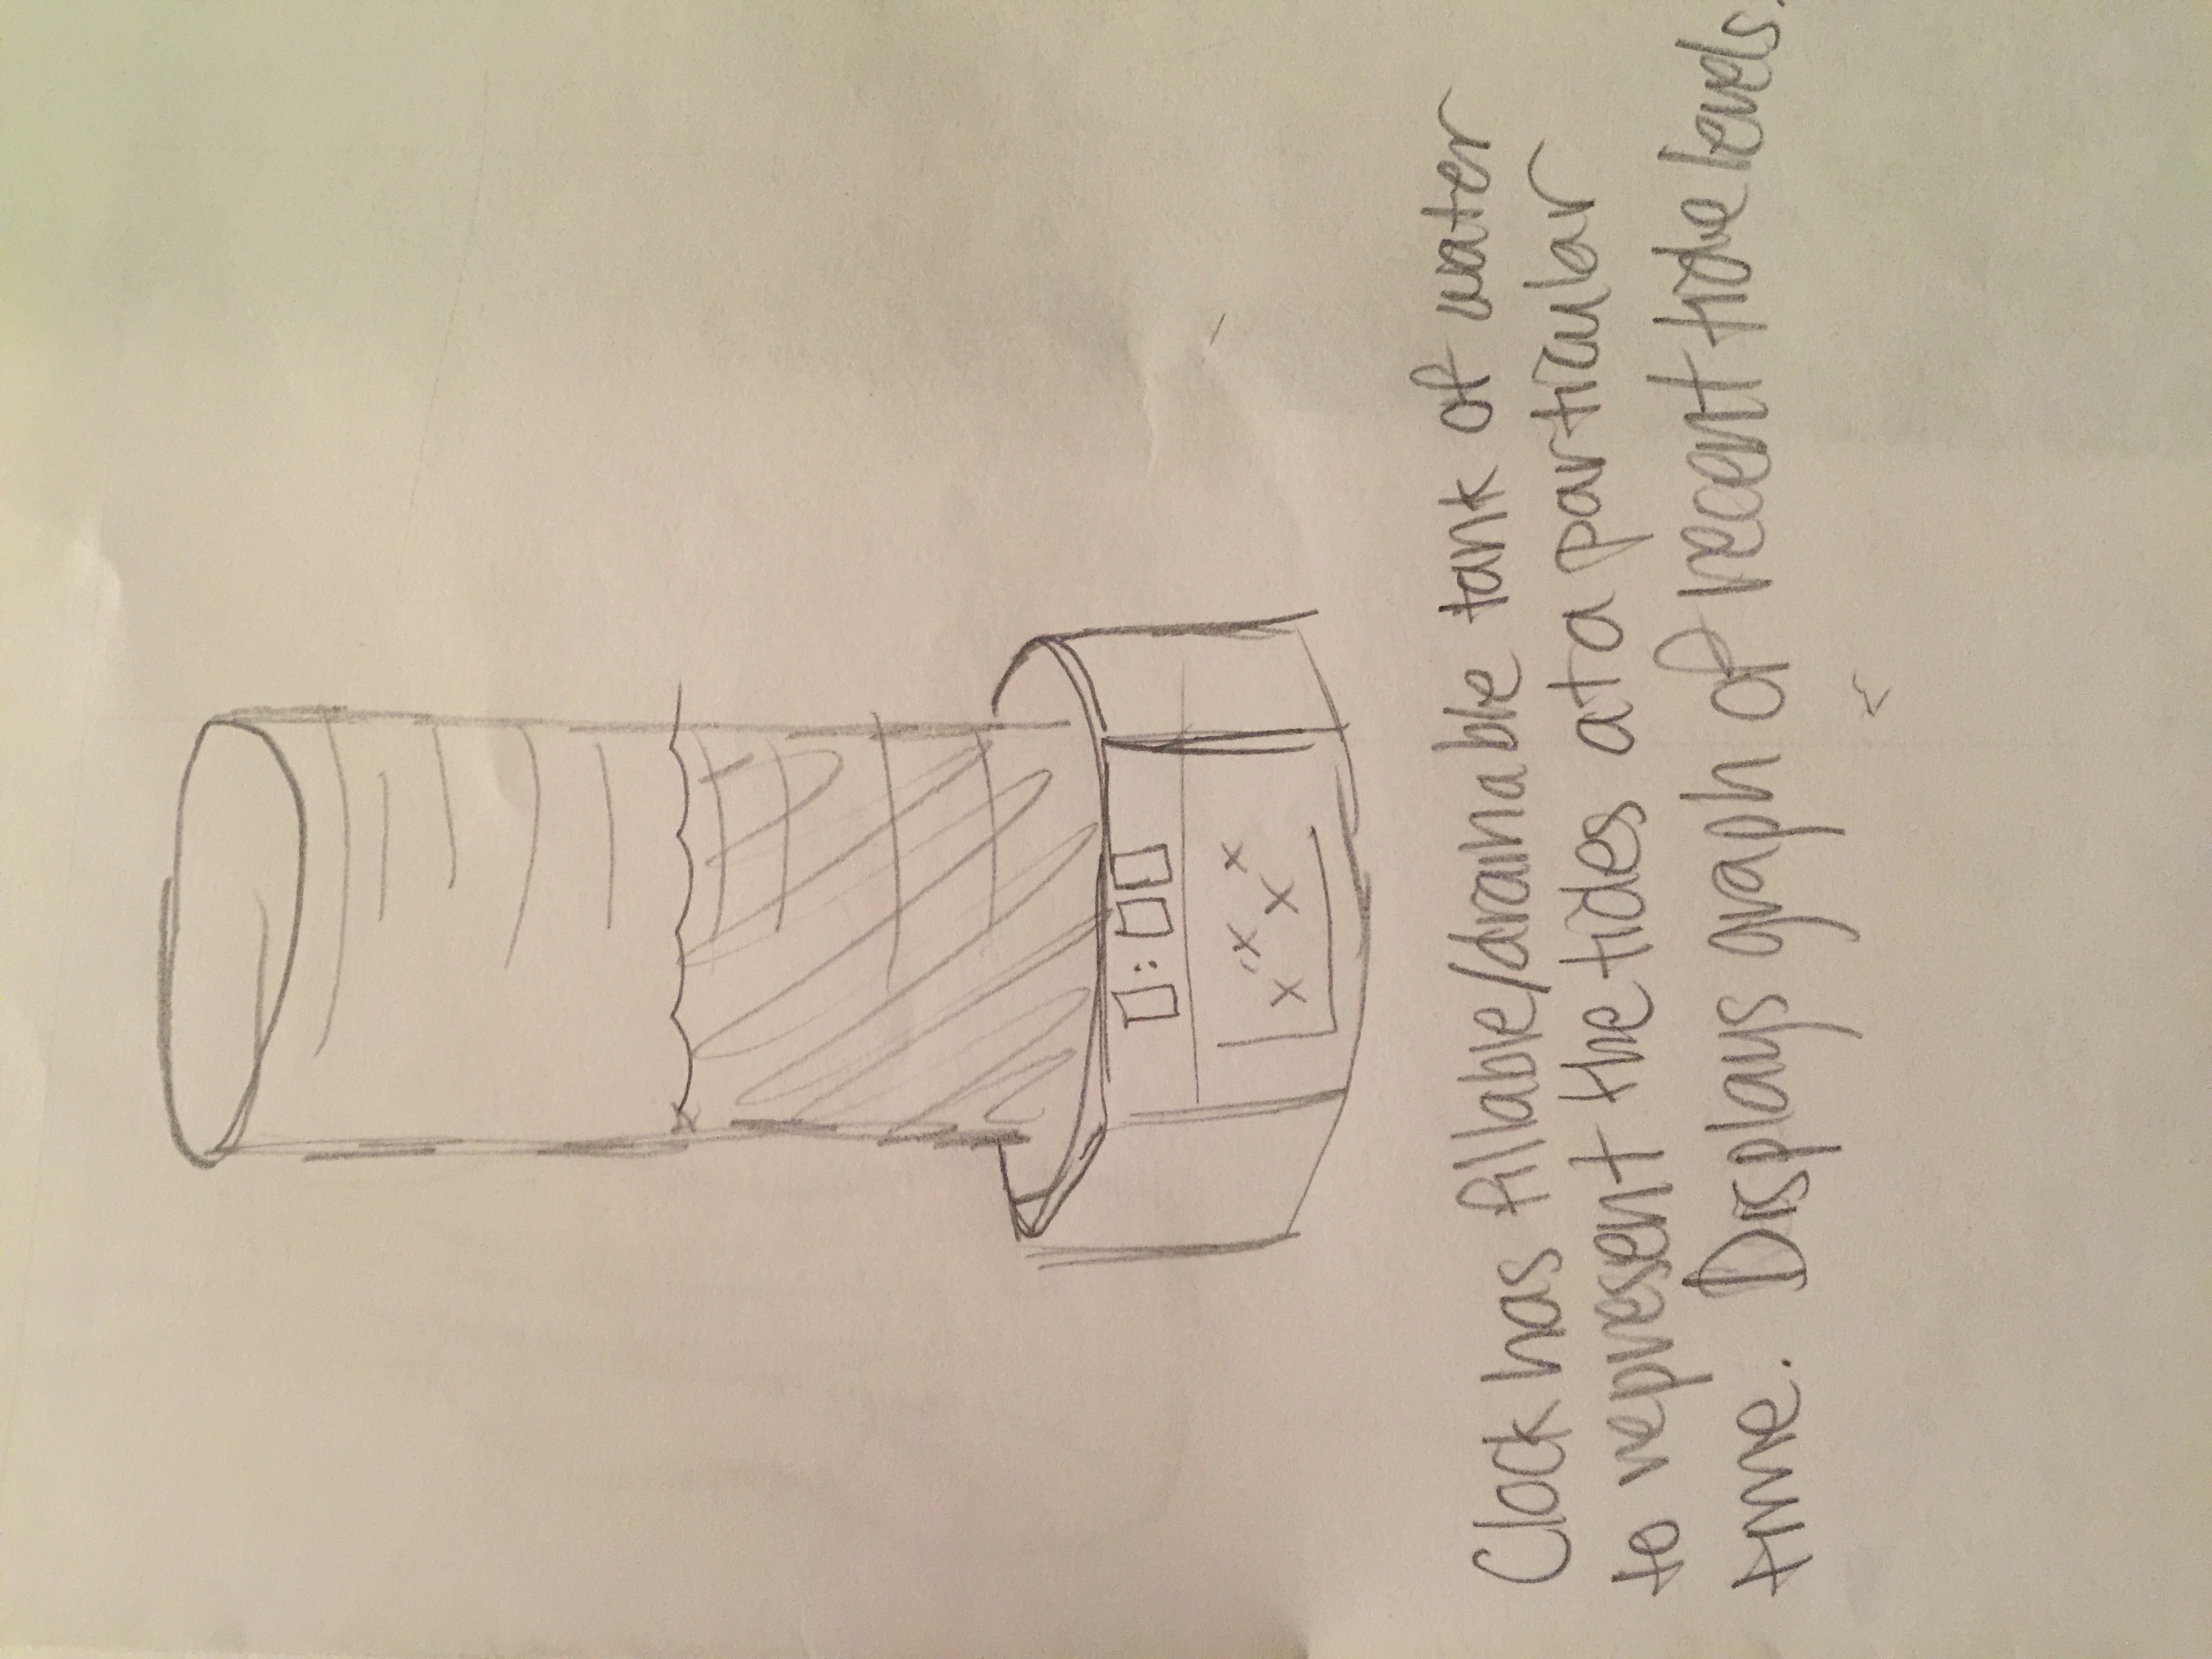 Clock has fillable/drainable tank of water
to represent the tides at a particular
time. Displays graph of recent tide levels.